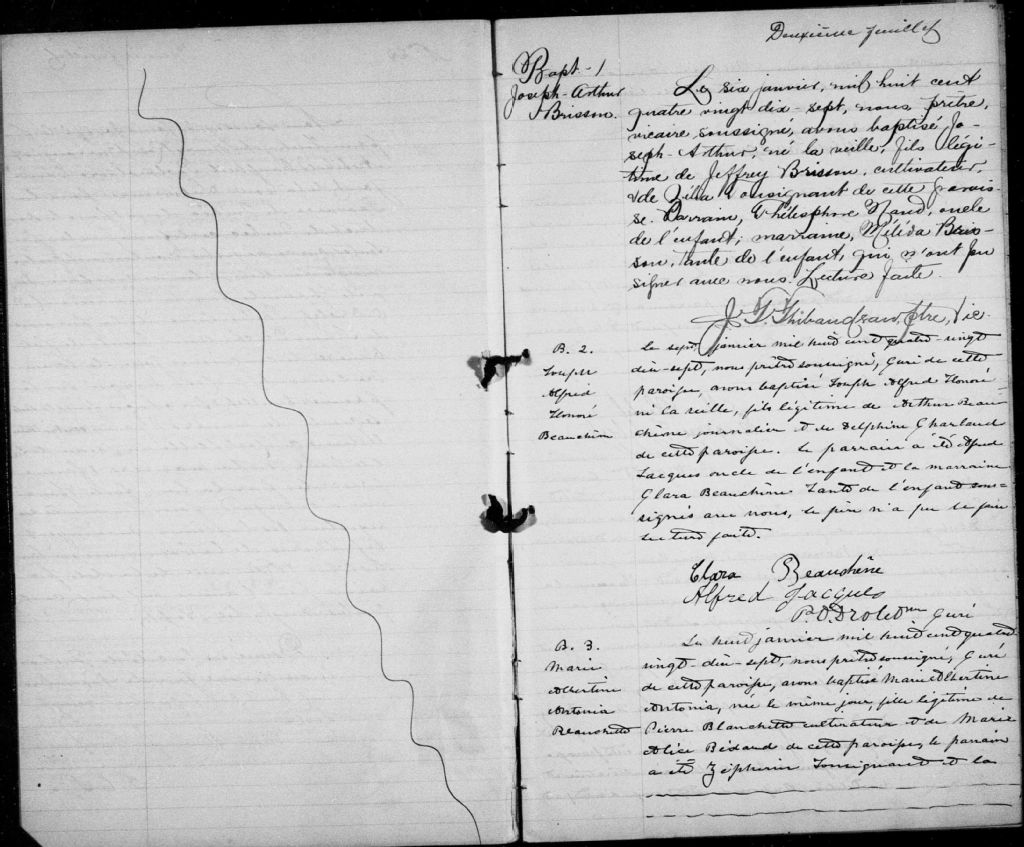 Deuxième feuillet
Bapt-1
Joseph-Arthur
Brisson.
Le six janvier, mil huit cent
quatre vingt dix-sept, nous, prêtre,
vicaire soussigné, avons baptisé Jo-
seph-Arthur, né la veille, fils légi-
time de Jeffrey Brisson, cultivateur,
& de Zélia Tousignant de cette parois-
se. Parrain, Thélesphore Naud, oncle
de l'enfant; marraine, Mélida Bris-
son, tante de l'enfant, qui n'ont pu
signer avec nous. Lecture faite.
J. T. Thibaudeau, Ptre, Vic.
B. 2.
Joseph
Alfred
Honoré
Beauchène
Le sept janvier mil huit cent quatre-vingt
dix-sept, nous prêtre soussigné, Curé de cette
paroisse, avons baptisé Joseph Alfred Honoré
né la veille, fils légitime de Arthur Beau
chène journalier et de Delphine Charland
de cette paroisse. Le parrain a été Alfred
Jacques oncle de l'enfant et la marraine
Clara Beauchène tante de l'enfant sous-
signés avec nous, le père n'a pu le faire
lecture faite.
Clara Beauchêne
Alfred Jacques
P. O. Drolet Curé
B. 3.
Marie
Albertine
Antonia
Blanchette
Le huit janvier mil huit cent quatre
vingt-dix-sept, nous prêtre soussigné, Curé
de cette paroisse, avons baptisé Marie Albertine
Antonia, née le même jour, fille légitime de
Pierre Blanchette cultivateur et de Marie
Alice Bédard de cette paroisse, le parrain
a été Zéphirin Tousignant et la